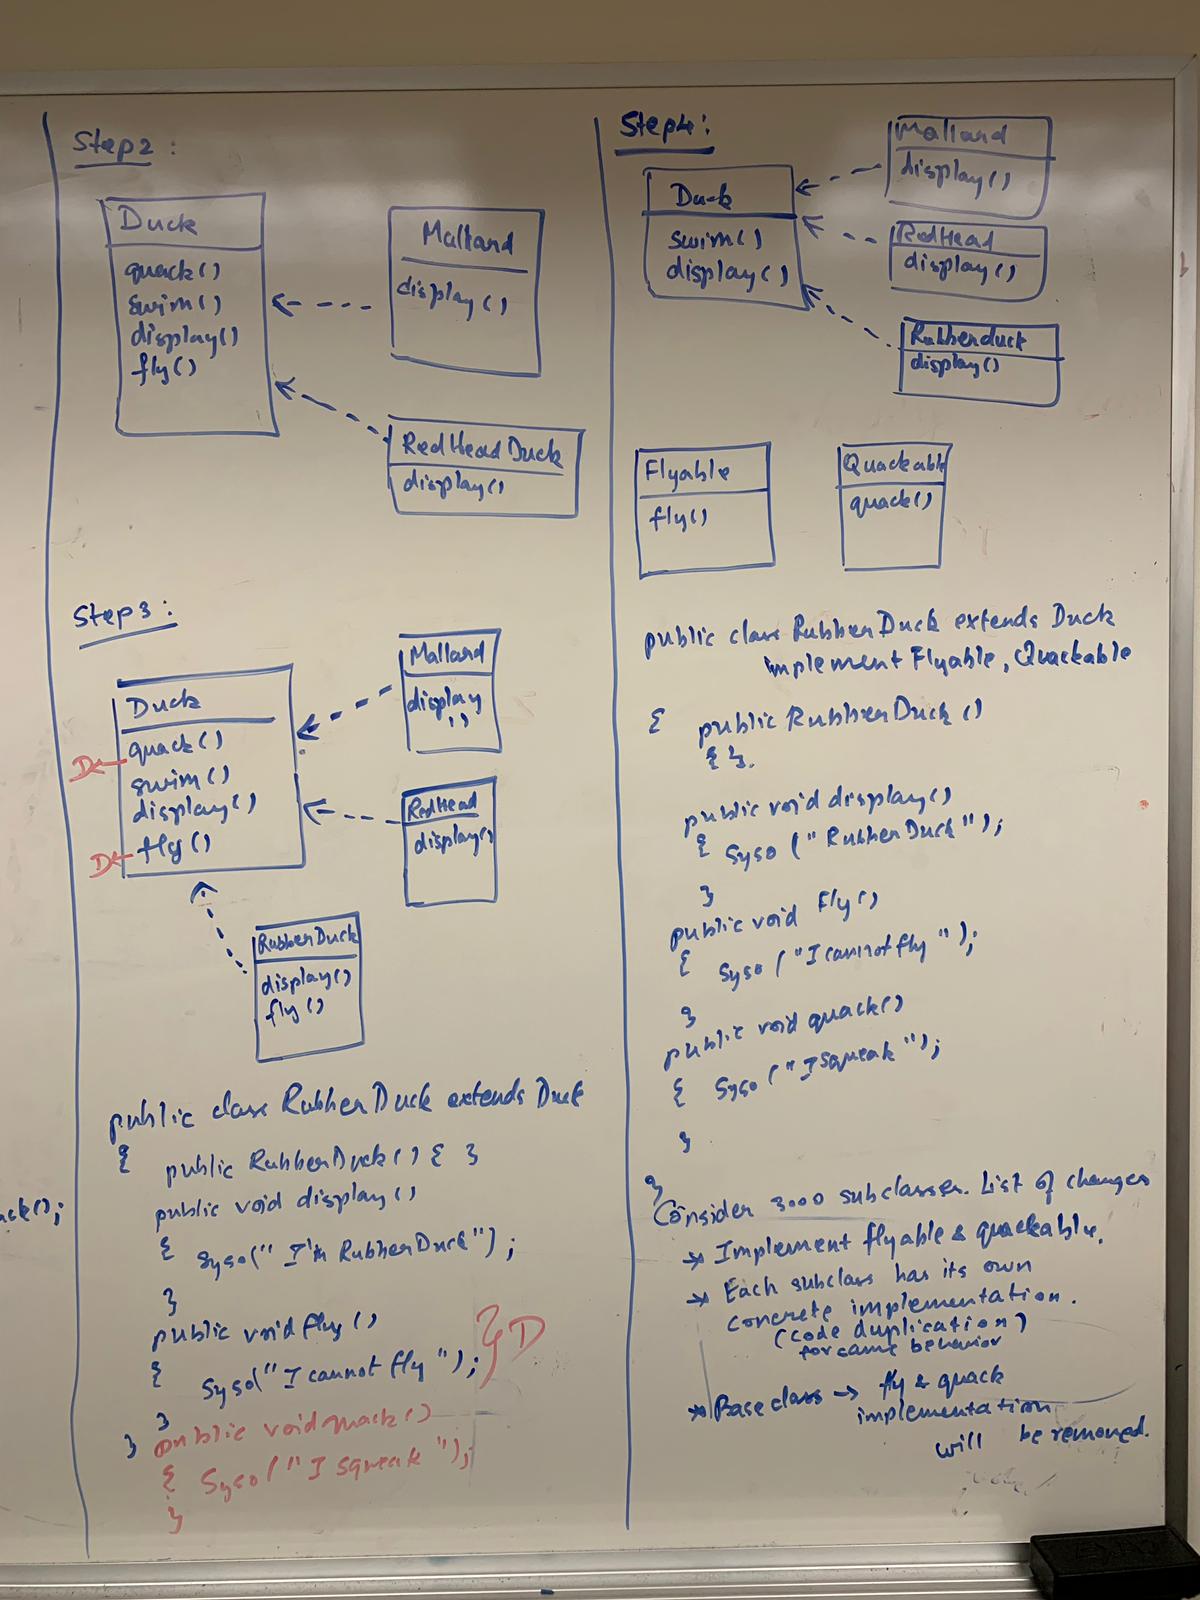 Step2:
Duck
quack()
swim()
display()
fly()
Mallard
display()
RedHeadDuck
display()
Step3:
Duck
quack()
swim()
display()
fly()
D
D
Mallard
display
()
RedHead
display()
RubberDuck
display()
fly()
public class RubberDuck extends Duck
{ public RubberDuck() { }
public void display()
{ Syso(" I'm RubberDuck");
}
public void fly()
{ Syso("I cannot fly");
} D
}
} public void quack()
{ Syso("I squeak");
}
Step4:
Duck
swim()
display()
Mallard
display()
RedHead
display()
Rubberduck
display()
Flyable
fly()
Quackable
quack()
public class RubberDuck extends Duck
implement Flyable, Quackable
{ public RubberDuck()
{ }.
public void display()
{ Syso ("RubberDuck");
}
public void Fly()
{ Syso ("I cannot fly");
}
public void quack()
{ Syso ("I squeak");
}
}
Consider 3000 subclasses. List of changes
→ Implement flyable & quackable.
→ Each subclass has its own
concrete implementation.
(code duplication)
for same behavior
→ Base class → fly & quack
implementation
will be removed.